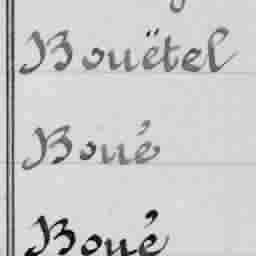 Bouëtel
Boué
Boué